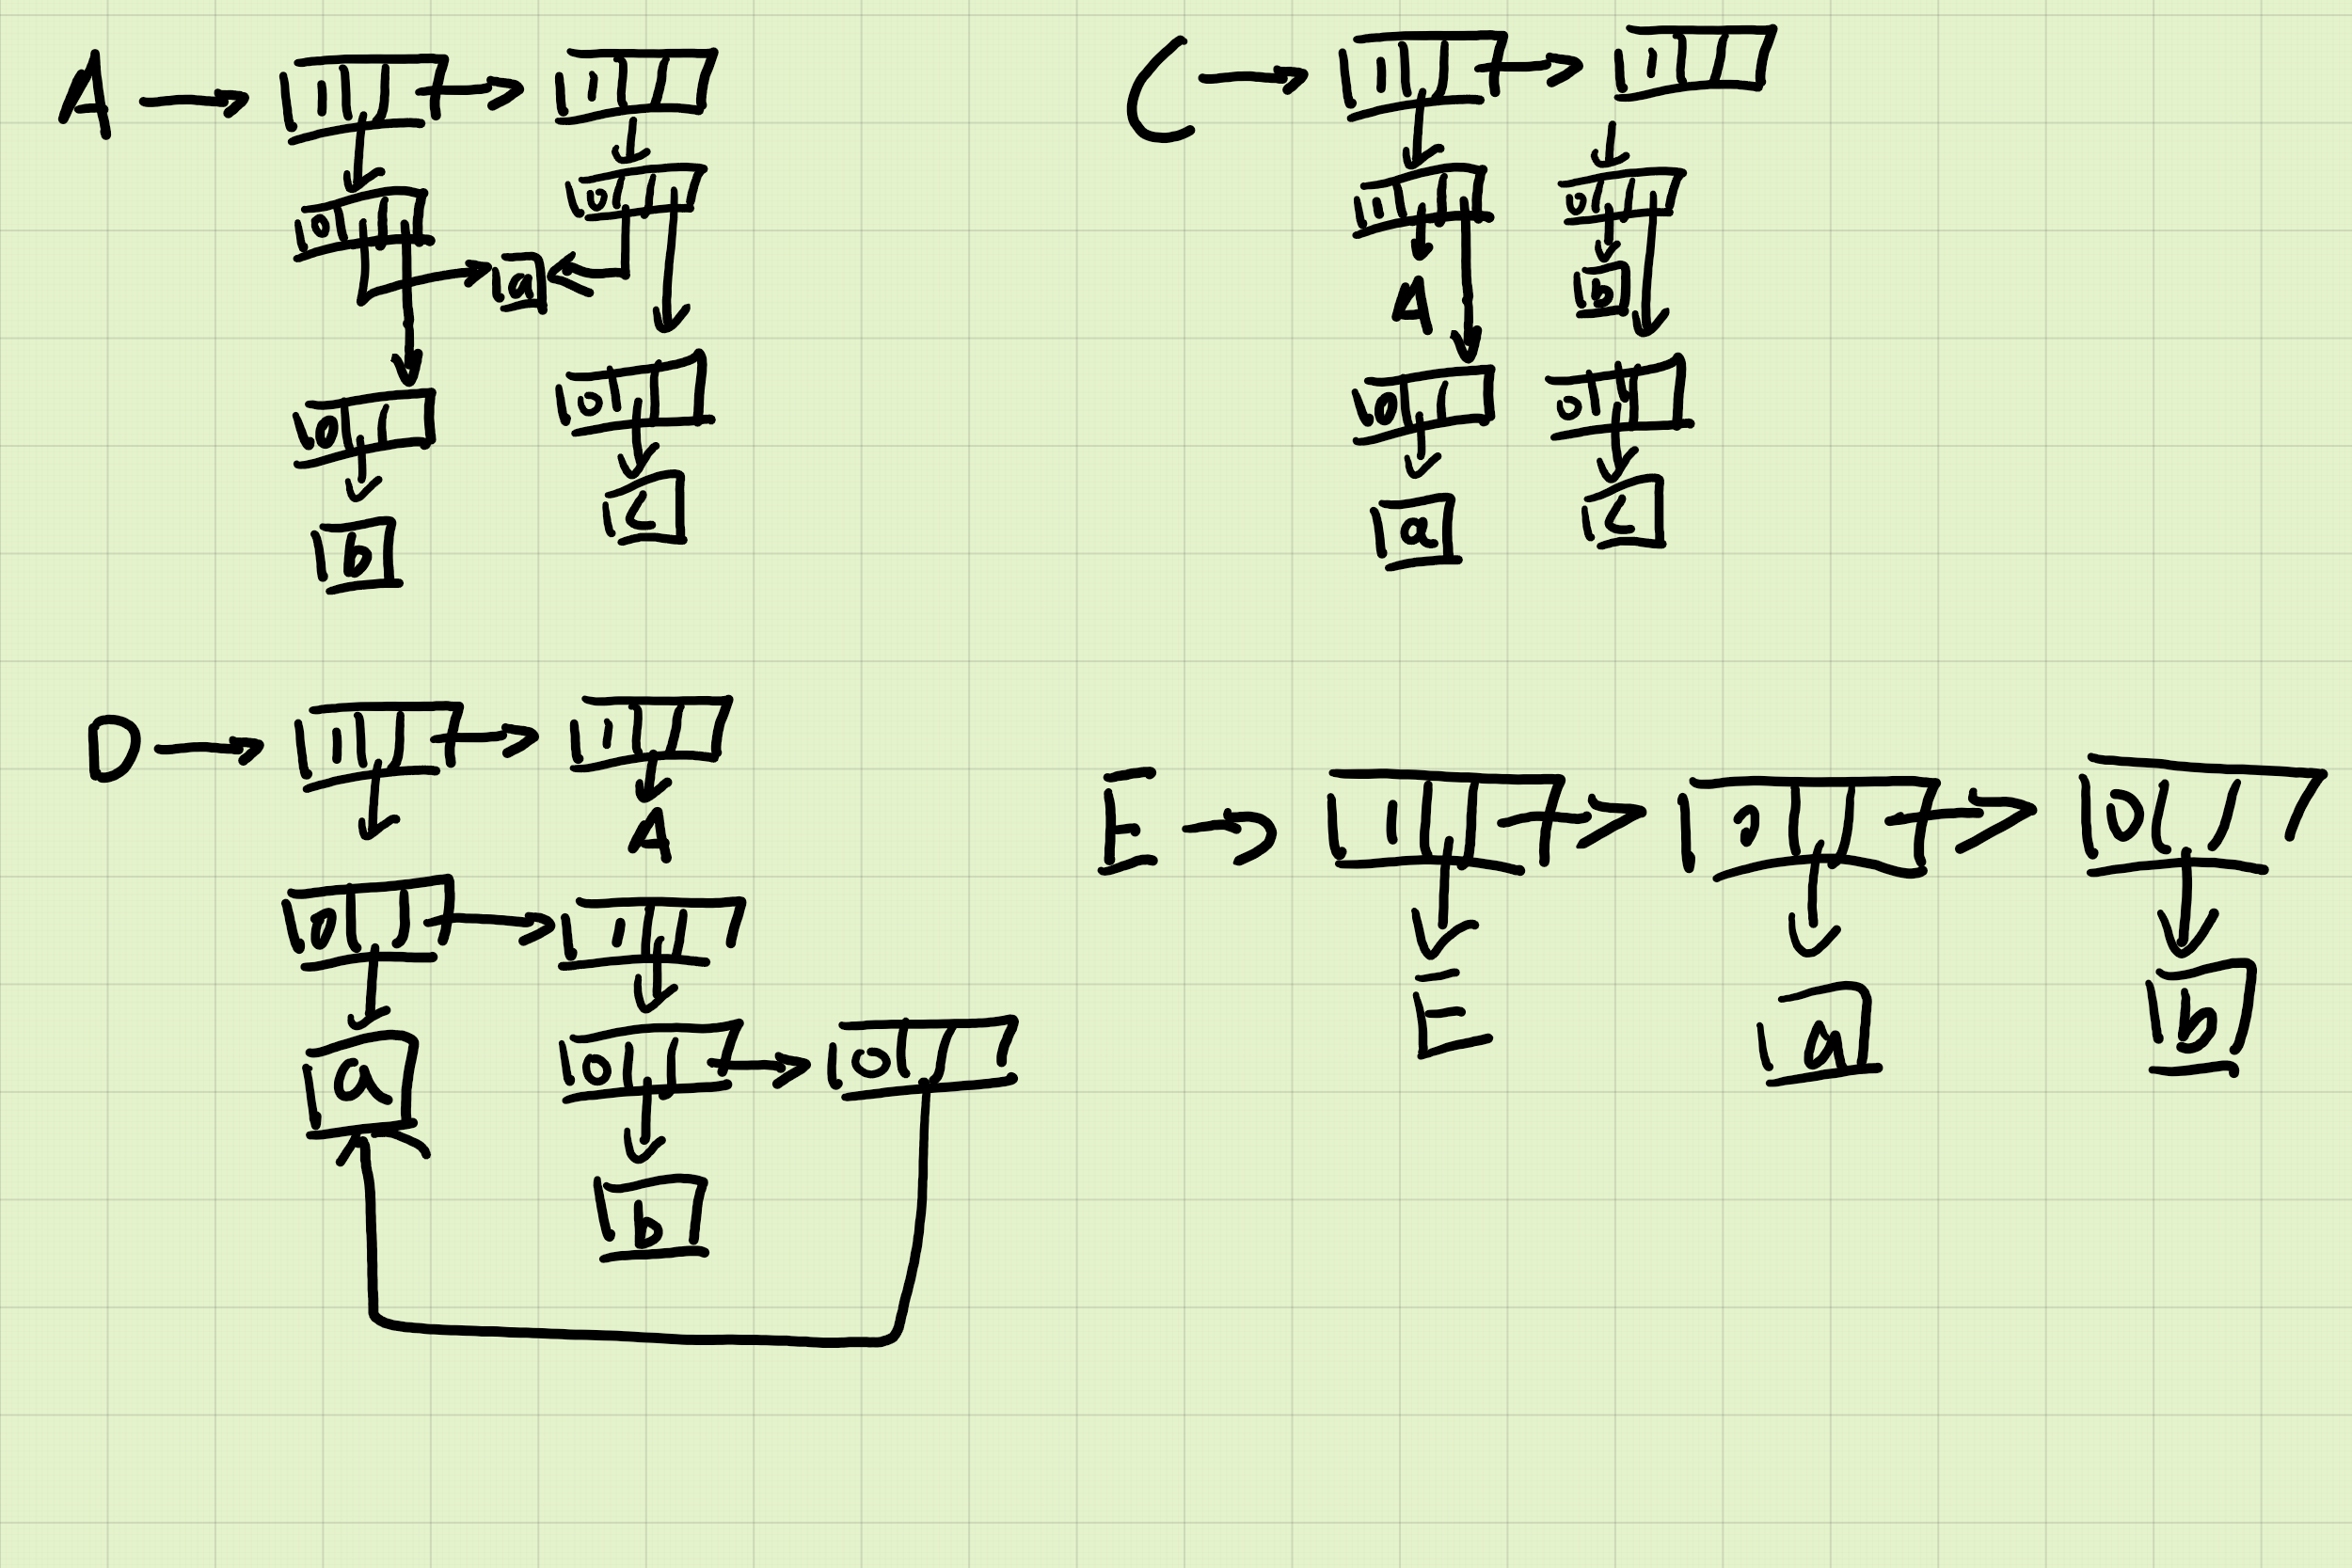 A 1 1
0 0
a
0 0
b c
C 1 1
1 0
A b
0 0
a c
D 1 1
A
0 1
a 0 0
b
E 1 0 0
E a b